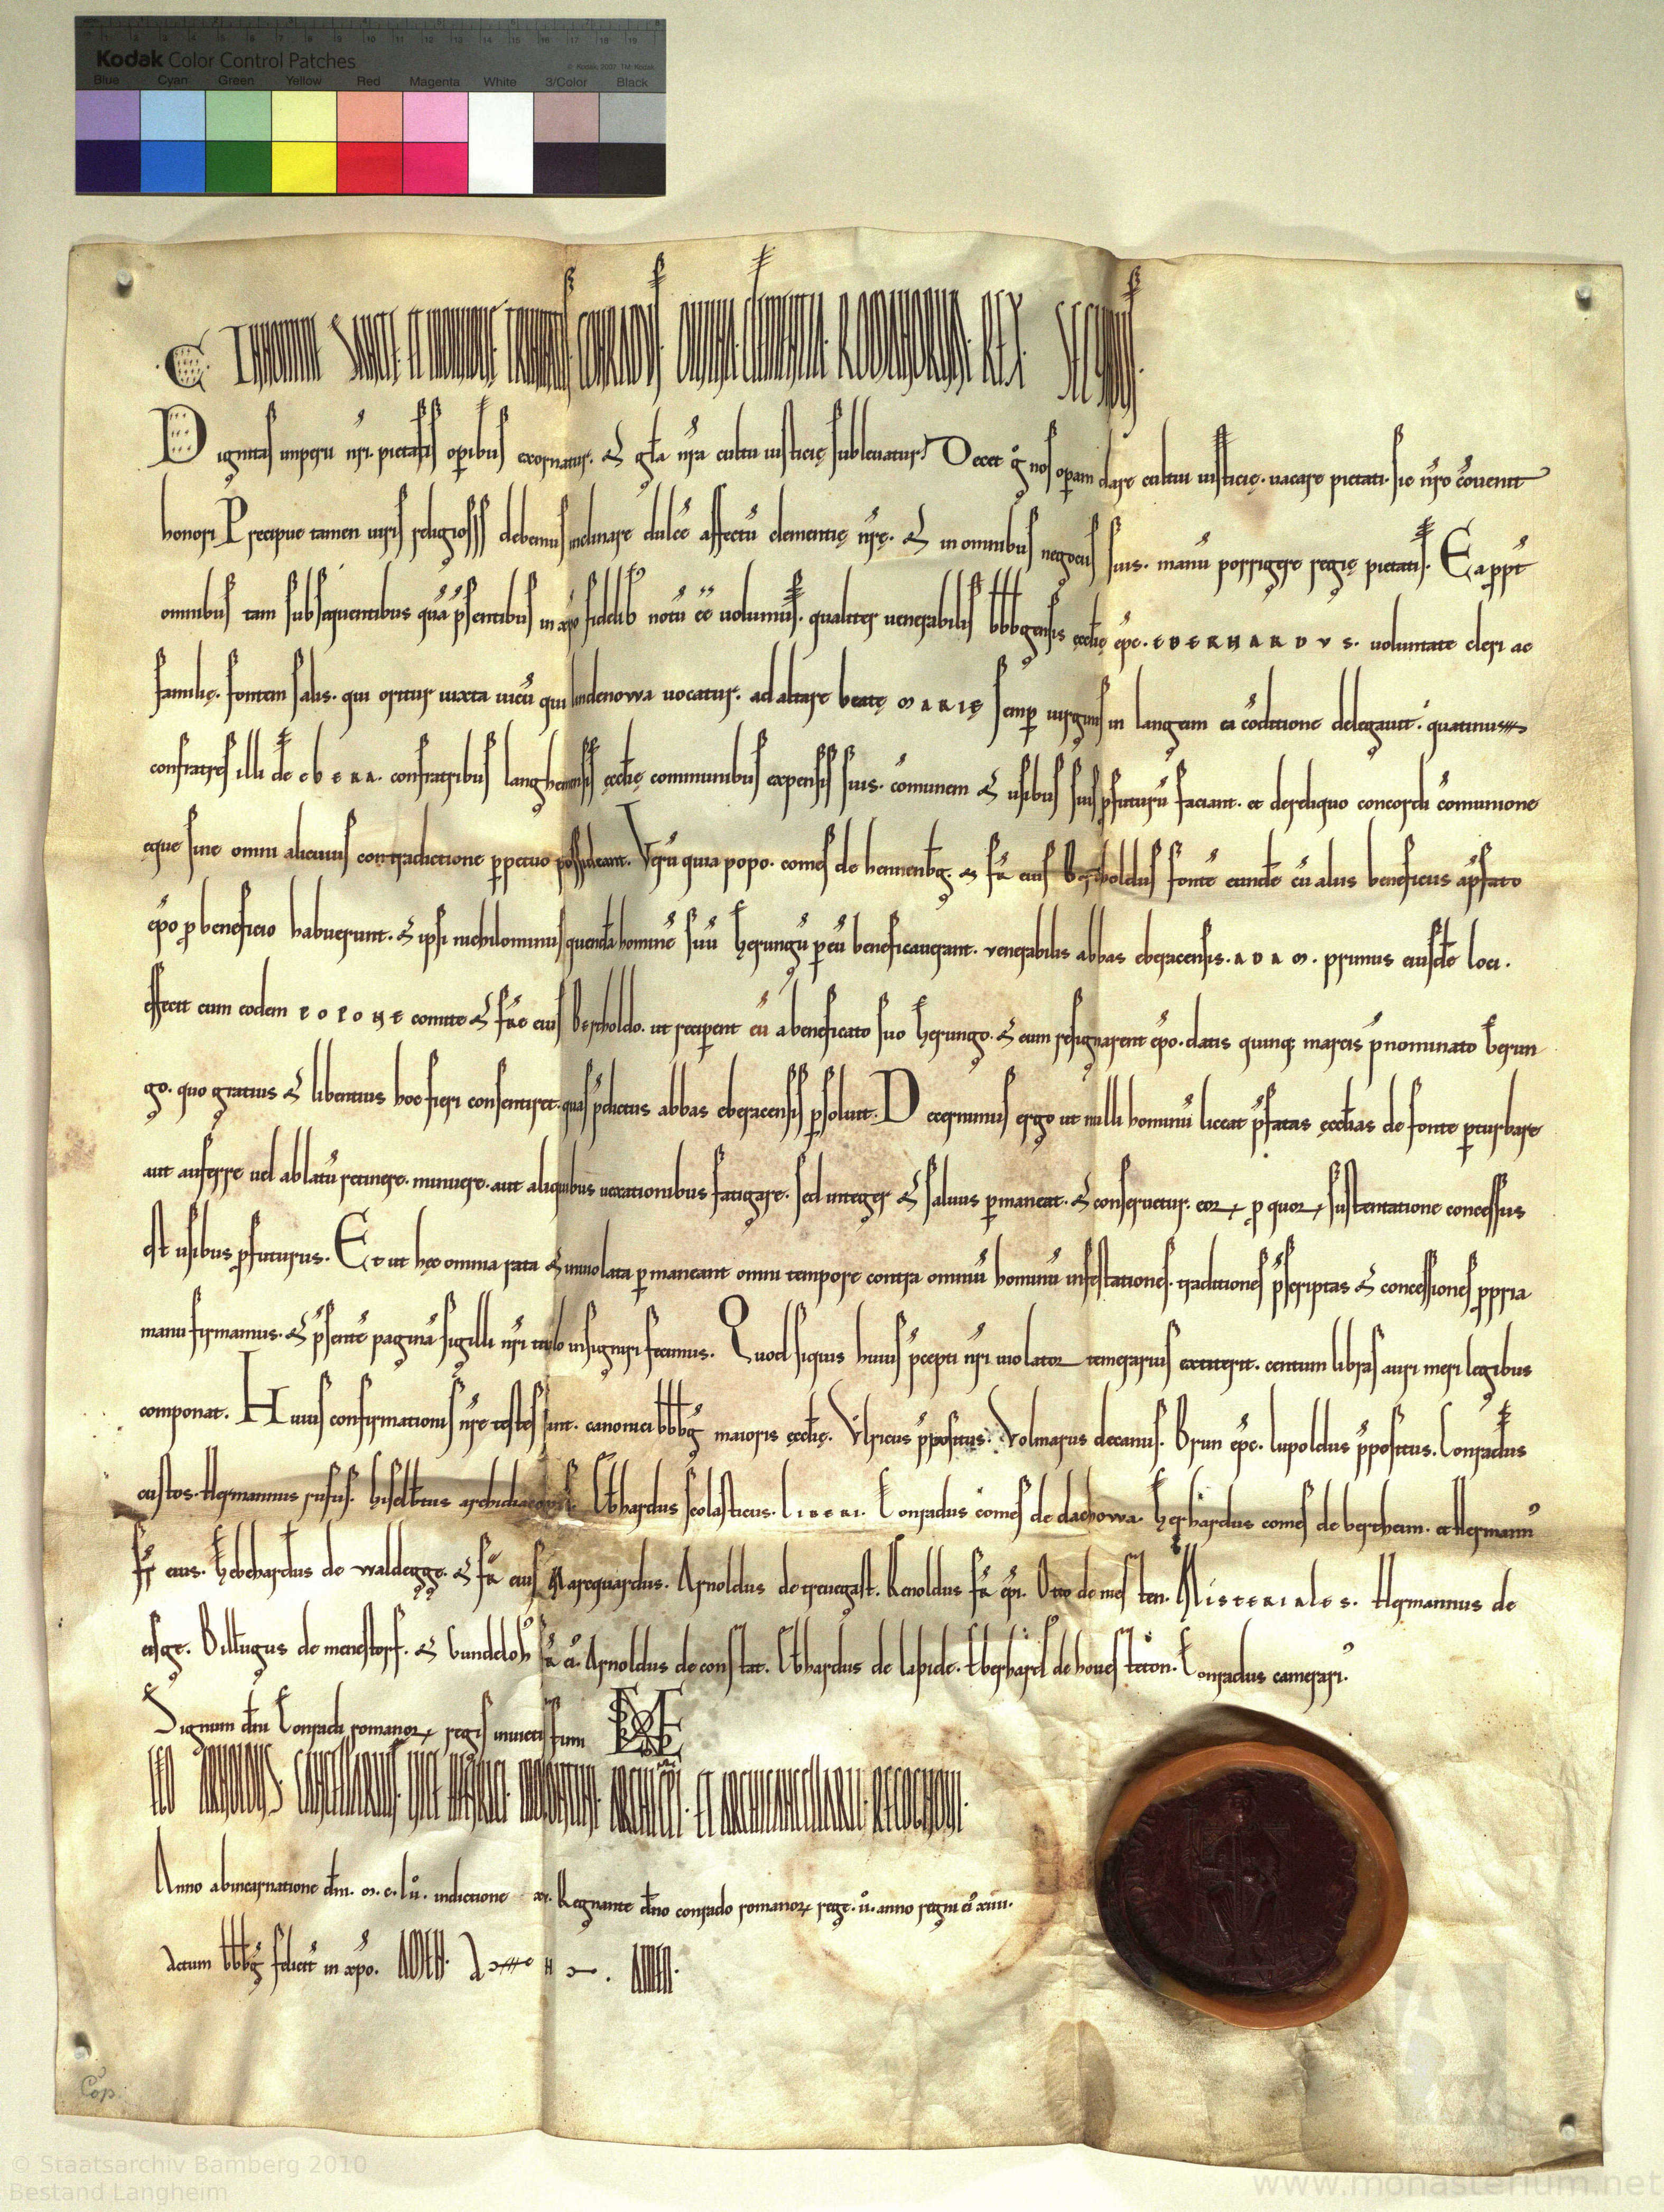 Kodak Color Control Patches
© Kodak, 2007 TM: Kodak
Blue Cyan Green Yellow Red Magenta White 3/Color Black
C IN NOMINE SANCTE ET INDIVIDUE TRINITATIS CONRADVS DIVINA CLEMENTIA ROMANORUM REX SECUNDUS
Dignitas imperii nri. pietatis opibus exornatur. & gla nra cultu iusticię subleuatur. Decet g nos opam dare cultui iusticię. uacare pietati. sic nro couenit
honori Precipue tamen uiris religiosis debemus inclinare dulce affectu clementię nrę. & in omnibus negociis suis. manu porrigere regię pietatis. Ea ppt
omnibus tam subsequentibus qua psentibus in xpo fidelib notu ee uolumus. qualiter uenerabilis bbbgensis ecclię epc. EBERHARDVS. uoluntate cleri ac
familię. fontem salis. qui oritur iuxta uicu qui lindenowa uocatur. ad altare beatę MARIĘ semp uirginis in langeim ea coditione delegauit. quatinus
confratres illi de EBERA. confratribus langhemensis ecclię communibus expensis suis. comunem & usibus suis pfuturu faciant. et derelicto concordi comunione
eque sine omni alicuius contradictione ppetuo possideant. Veru quia popo. comes de hennenbg. & fr eius Bertholdus fonte eunde cu aliis beneficiis a pfato
epo p beneficio habuerunt. & ipsi nichilominus quenda homine suu herungu p eu beneficauerant. uenerabilis abbas eberacensis. ADAM. primus eiusde loci.
effecit cum eodem POPONE comite & fre eius bertholdo. ut reciperent eu a beneficato suo herungo. & eum resignarent epo. datis quinq marcis pnominato herun
go. quo gratius & libentius hoc fieri consentiret. quas pdictus abbas eberacensis psoluit. Decernimus ergo ut nulli hominu liceat pfatas ecclias de fonte pturbare
aut auferre uel ablatu retinere. minuere. aut aliquibus uexationibus fatigare. sed integer & saluus pmaneat. & conseruetur. eor p quor sustentatione concessus
est usibus pfuturus. Et ut hęc omnia rata & inuiolata pmaneant omni tempore contra omniu hominu infestationes. traditiones pscriptas & concessiones ppria
manu firmamus. & psente pagina sigilli nri titulo insigniri fecimus. Quod siquis huius pcepti nri uiolator temerarius extiterit. centum libras auri meri legibus
componat. Huius confirmationis nre testes sunt. canonici bbbg maioris ecclię. Vlricus ppositus. Volmarus decanus. Brun epc. lupoldus ppositus. Conradus
custos. Hermannus rufus. hiselbtus archidiaconus. Ebhardus scolasticus. LIBERI. Conradus comes de dachowa. herhardus comes de bertheim. et Hermann
fr eius. Gebehardus de waldegge. & fr eius Marequardus. Arnoldus de treuegast. Renoldus fr epi. Otto de mes ten. Misteriales. Hermannus de
erge. Billugus de menestorf. & Gundeloh fr ei. Arnoldus de constat. Ebhardus de lapide. Eberhard de houesteten. Conradus camerari.
Signum dni Conradi romanor regis inuictissimi
EGO ARNOLDUS CANCELLARIUS VICE HEINRICI MOGONTINI ARCHIEPI ET ARCHICANCELLARII RECOGNOVI
Anno ab incarnatione dni. m. c. lu. indictione xv. Regnante dno conrado romanor rege. ii. anno regni ei xiiii.
actum bbbg feliciter in xpo. AMEN. AMEN.
Cop.
© Staatsarchiv Bamberg 2010
Bestand Langheim
www.monasterium.net